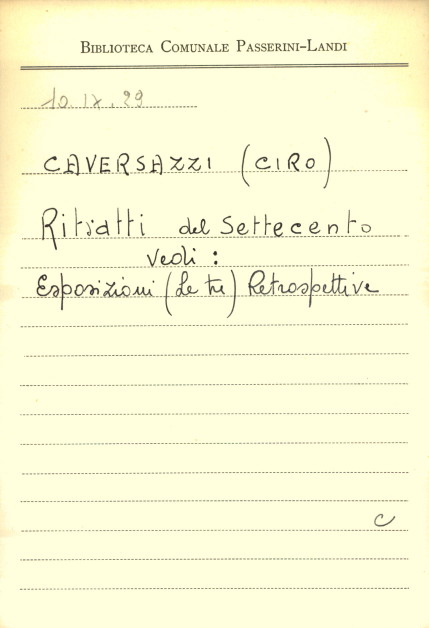 BIBLIOTECA COMUNALE PASSERINI-LANDI
10.IX.29
CAVERSAZZI (CIRO)
Ritratti del Settecento
vedi:
Esposizioni (Le tre) Retrospettive
C